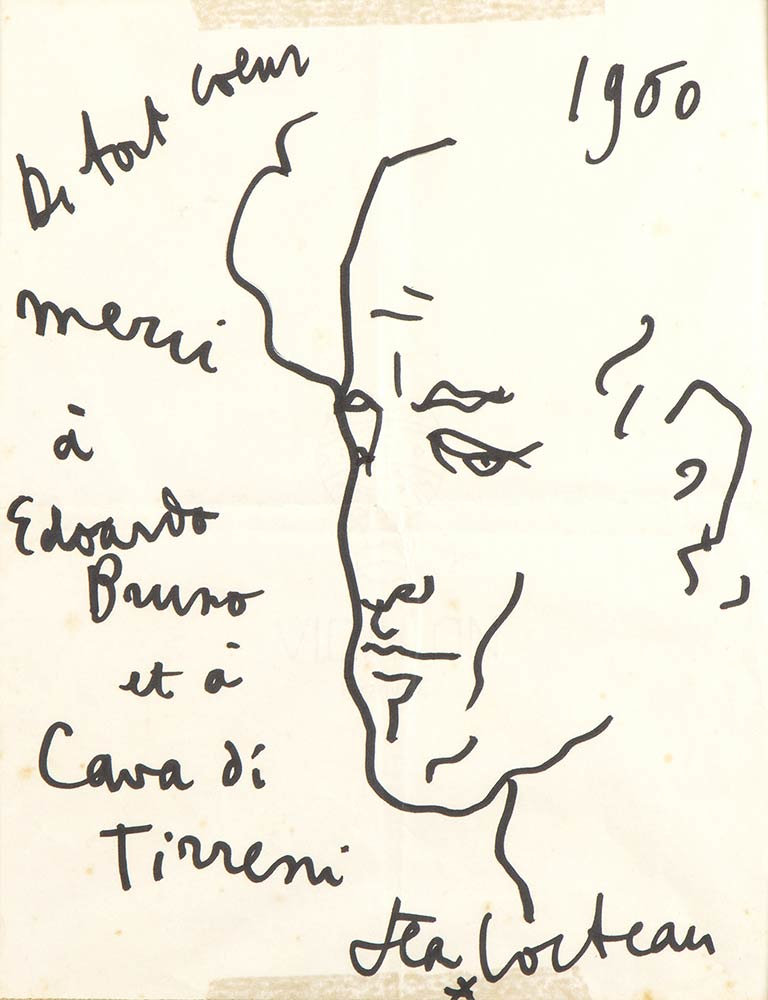 De tout coeur
1960
merci
à
Edoardo
Bruno
et à
Cava di
Tirreni
Jean Cocteau
*